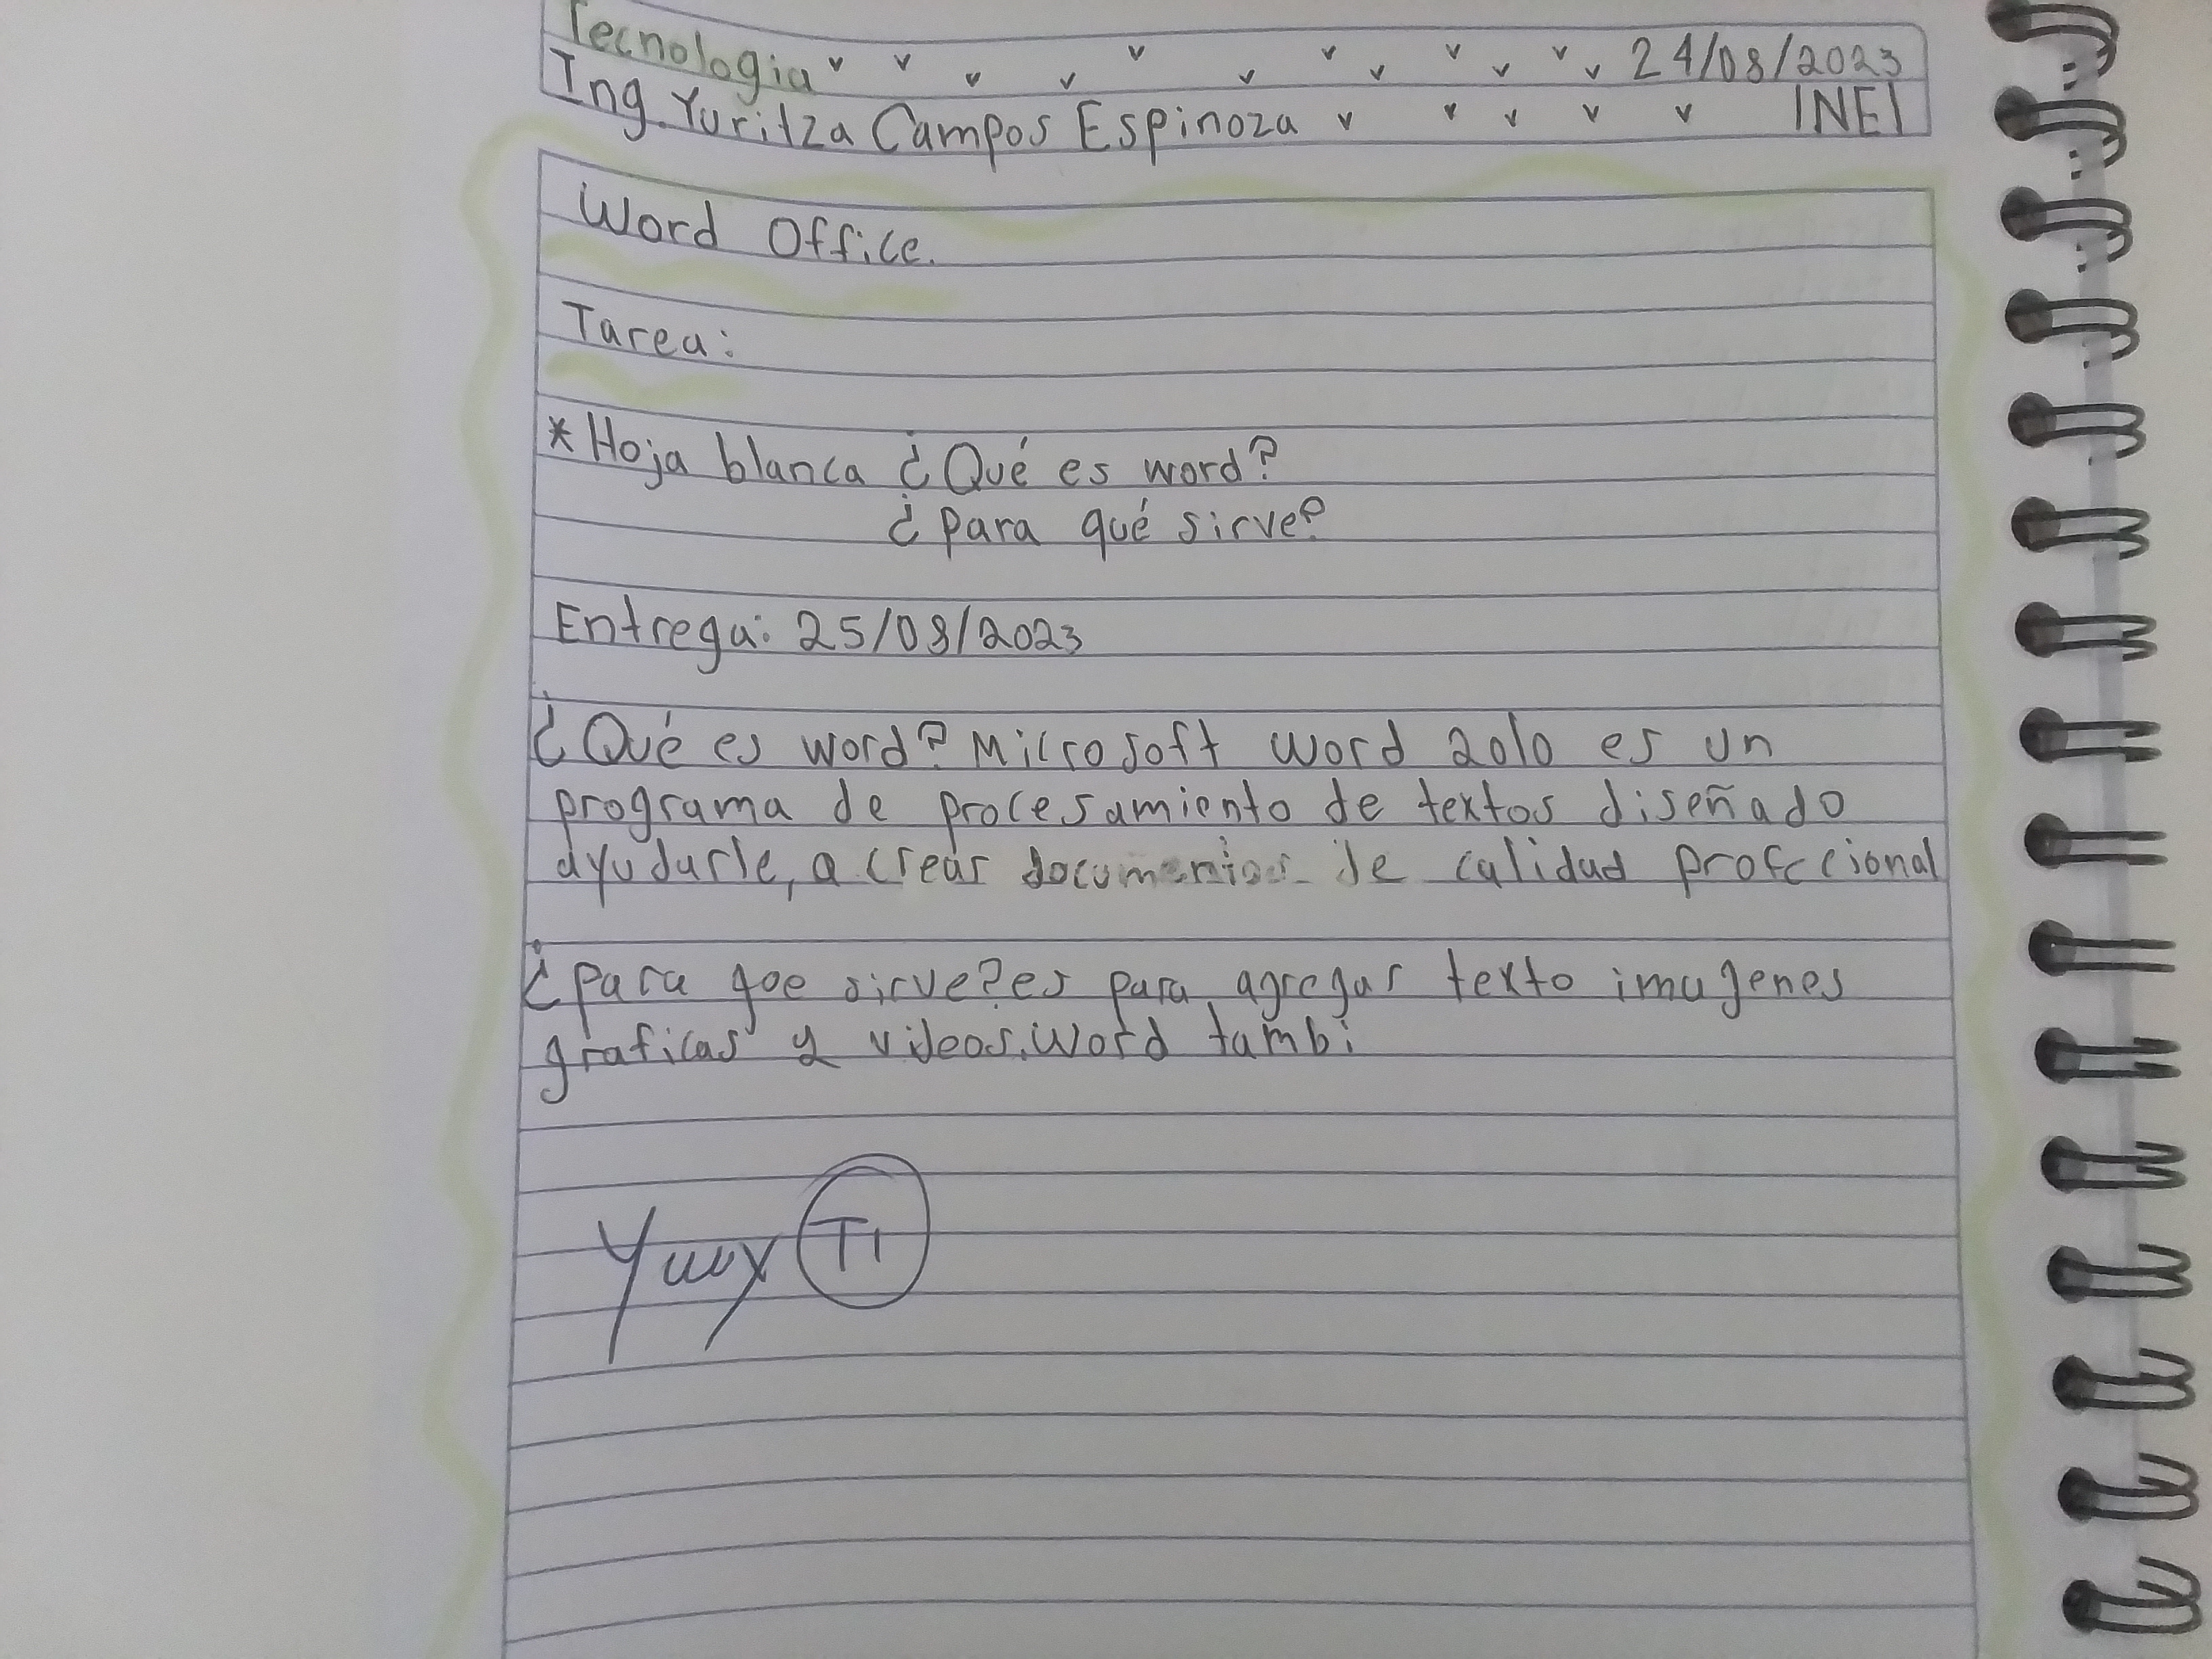 Tecnologia 24/08/2023
Ing. Yuritza Campos Espinoza INEI
Word Office.
Tarea:
* Hoja blanca ¿Qué es word?
¿para qué sirve?
Entrega: 25/08/2023
¿Qué es word? Microsoft word 2010 es un
programa de procesamiento de textos diseñado
ayudarle, a crear documentos de calidad profecional
¿para qoe sirve? es para agregar texto imagenes
graficas y videos. Word tambi
TI